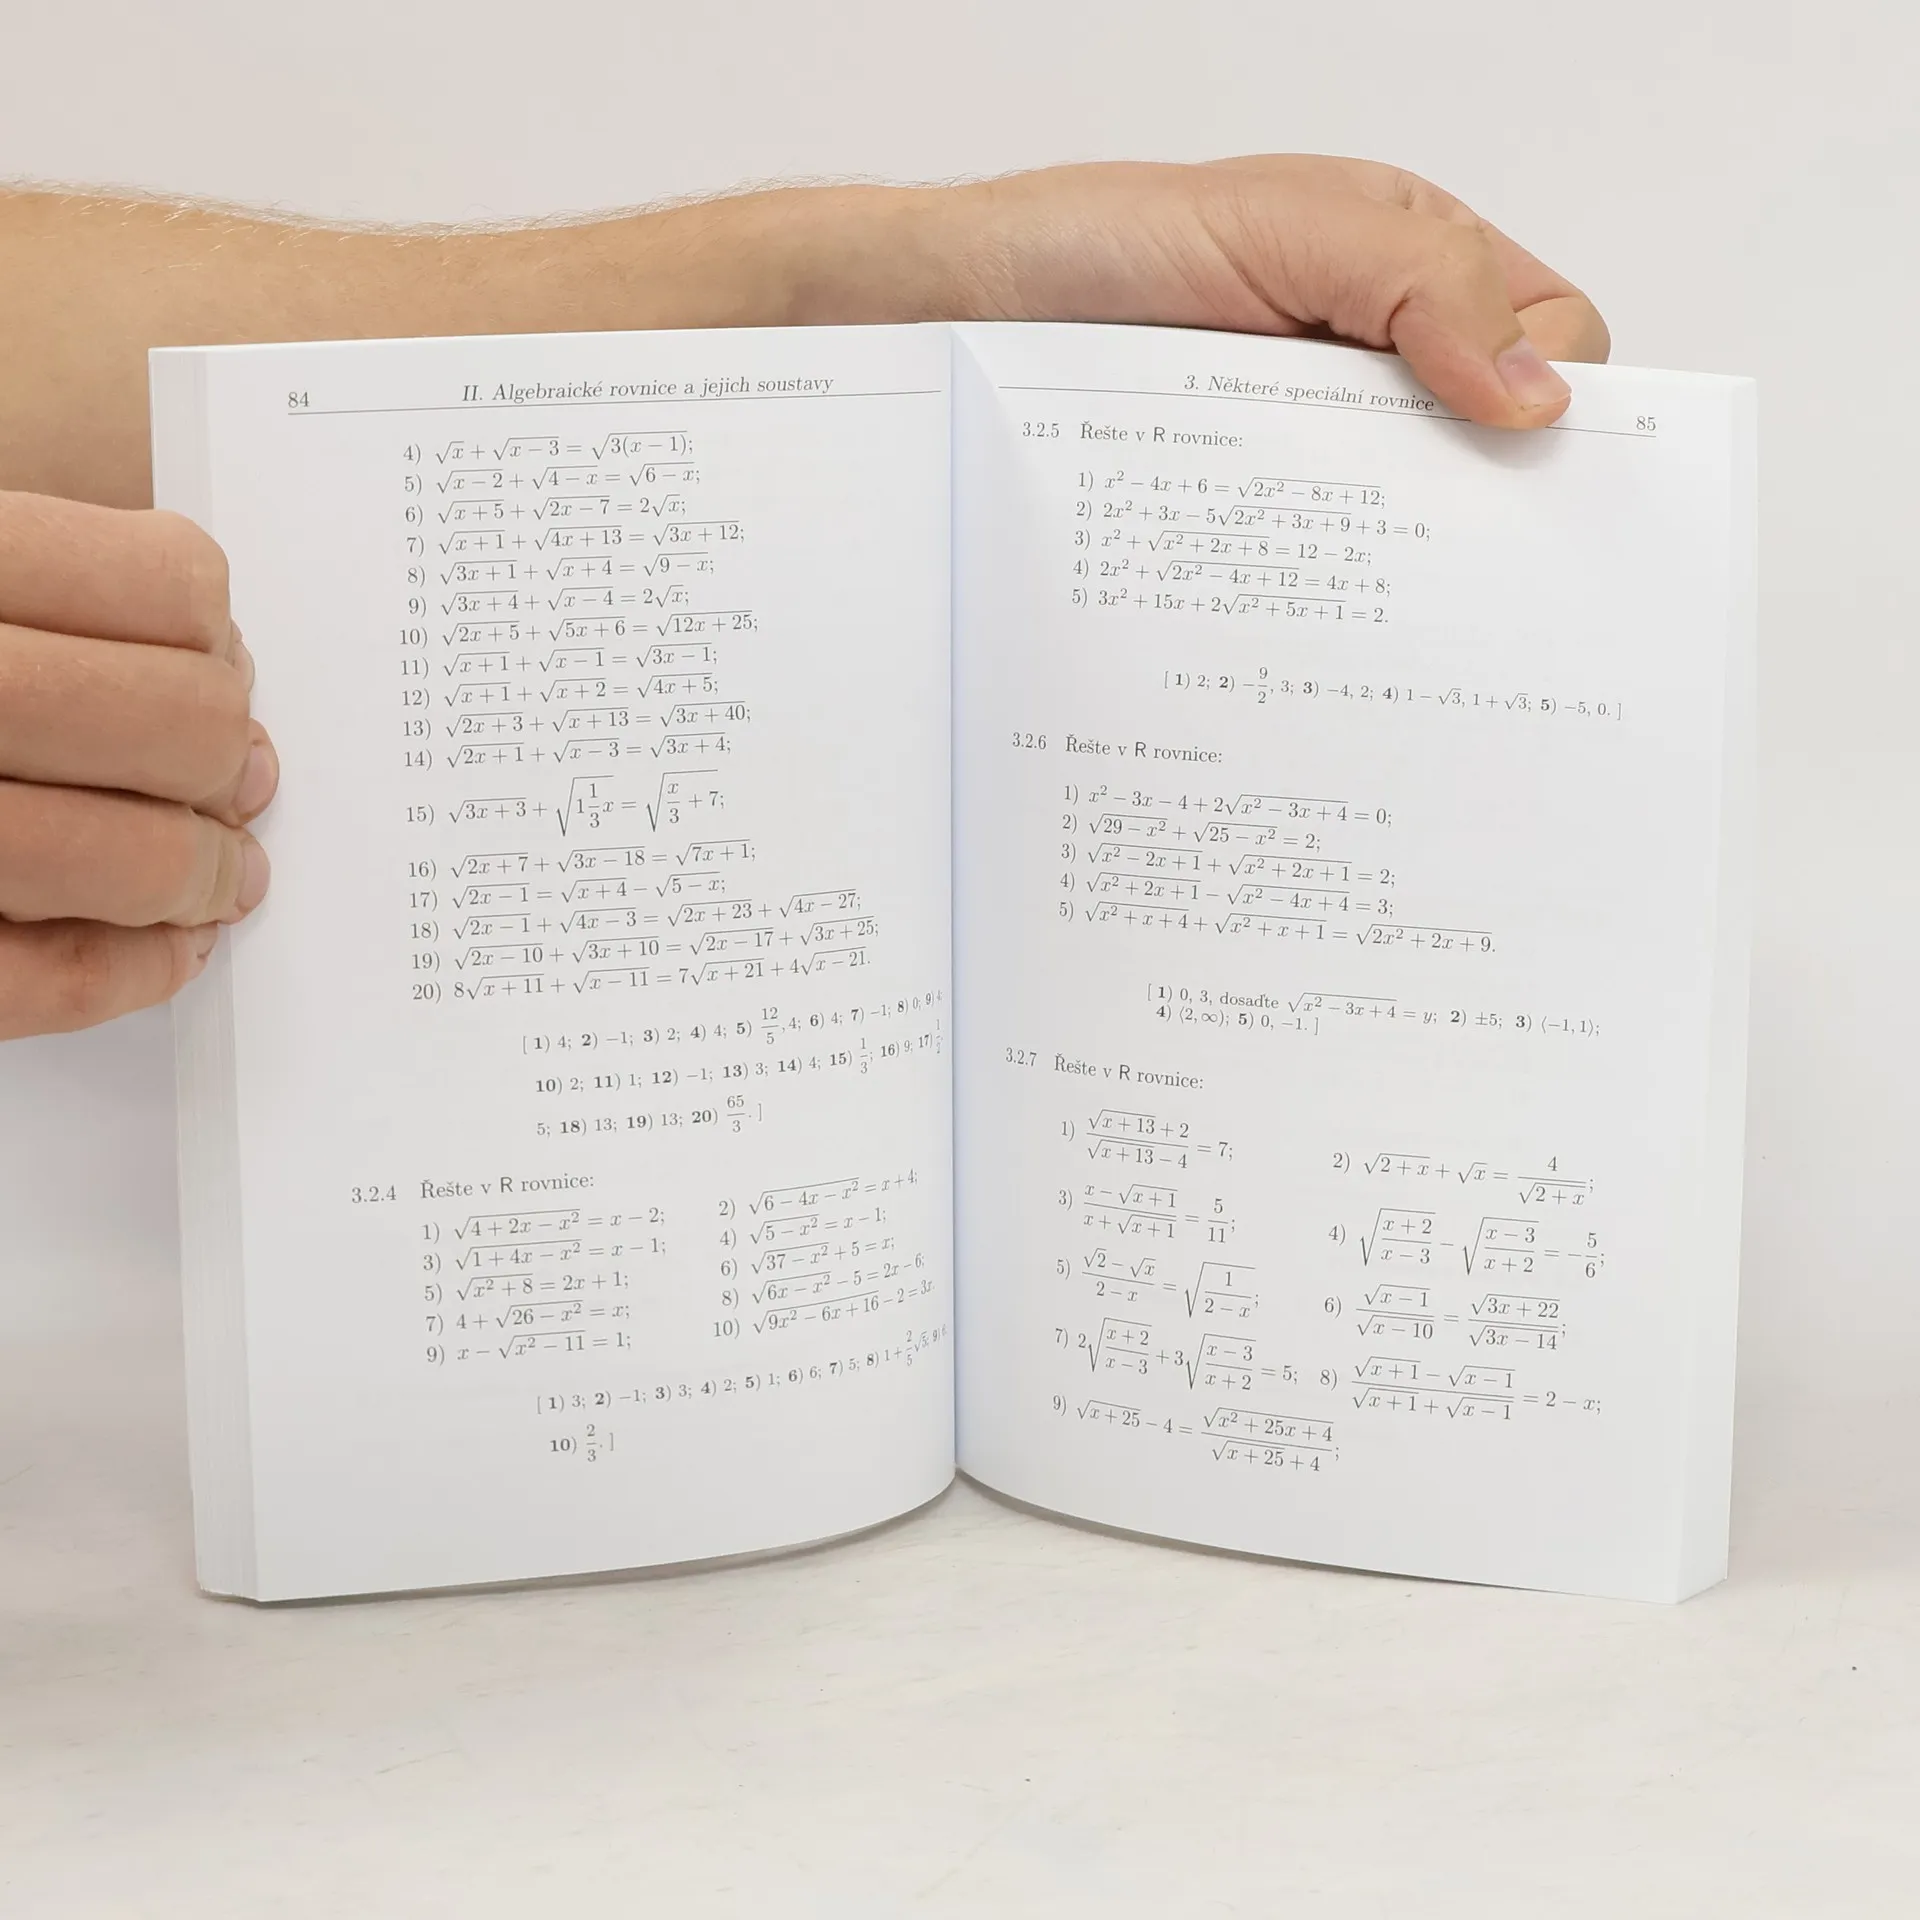 84
II. Algebraické rovnice a jejich soustavy
4) √x + √(x − 3) = √(3(x − 1));
5) √(x − 2) + √(4 − x) = √(6 − x);
6) √(x + 5) + √(2x − 7) = 2√x;
7) √(x + 1) + √(4x + 13) = √(3x + 12);
8) √(3x + 1) + √(x + 4) = √(9 − x);
9) √(3x + 4) + √(x − 4) = 2√x;
10) √(2x + 5) + √(5x + 6) = √(12x + 25);
11) √(x + 1) + √(x − 1) = √(3x − 1);
12) √(x + 1) + √(x + 2) = √(4x + 5);
13) √(2x + 3) + √(x + 13) = √(3x + 40);
14) √(2x + 1) + √(x − 3) = √(3x + 4);
15) √(3x + 3) + √(1 1/3 x) = √(x/3 + 7);
16) √(2x + 7) + √(3x − 18) = √(7x + 1);
17) √(2x − 1) = √(x + 4) − √(5 − x);
18) √(2x − 1) + √(4x − 3) = √(2x + 23) + √(4x − 27);
19) √(2x − 10) + √(3x + 10) = √(2x − 17) + √(3x + 25);
20) 8√(x + 11) + √(x − 11) = 7√(x + 21) + 4√(x − 21).
[ 1) 4; 2) −1; 3) 2; 4) 4; 5) 12/5, 4; 6) 4; 7) −1; 8) 0; 9) 4;
10) 2; 11) 1; 12) −1; 13) 3; 14) 4; 15) 1/3; 16) 9; 17) 1/2,
5; 18) 13; 19) 13; 20) 65/3. ]
3.2.4 Řešte v R rovnice:
1) √(4 + 2x − x²) = x − 2; 2) √(6 − 4x − x²) = x + 4;
3) √(1 + 4x − x²) = x − 1; 4) √(5 − x²) = x − 1;
5) √(x² + 8) = 2x + 1; 6) √(37 − x²) + 5 = x;
7) 4 + √(26 − x²) = x; 8) √(6x − x²) − 5 = 2x − 6;
9) x − √(x² − 11) = 1; 10) √(9x² − 6x + 16) − 2 = 3x.
[ 1) 3; 2) −1; 3) 3; 4) 2; 5) 1; 6) 6; 7) 5; 8) 1 + 2/5 √5; 9) 6;
10) 2/3. ]
3. Některé speciální rovnice
85
3.2.5 Řešte v R rovnice:
1) x² − 4x + 6 = √(2x² − 8x + 12);
2) 2x² + 3x − 5√(2x² + 3x + 9) + 3 = 0;
3) x² + √(x² + 2x + 8) = 12 − 2x;
4) 2x² + √(2x² − 4x + 12) = 4x + 8;
5) 3x² + 15x + 2√(x² + 5x + 1) = 2.
[ 1) 2; 2) −9/2, 3; 3) −4, 2; 4) 1 − √3, 1 + √3; 5) −5, 0. ]
3.2.6 Řešte v R rovnice:
1) x² − 3x − 4 + 2√(x² − 3x + 4) = 0;
2) √(29 − x²) + √(25 − x²) = 2;
3) √(x² − 2x + 1) + √(x² + 2x + 1) = 2;
4) √(x² + 2x + 1) − √(x² − 4x + 4) = 3;
5) √(x² + x + 4) + √(x² + x + 1) = √(2x² + 2x + 9).
[ 1) 0, 3, dosaďte √(x² − 3x + 4) = y; 2) ±5; 3) ⟨−1, 1⟩;
4) ⟨2, ∞); 5) 0, −1. ]
3.2.7 Řešte v R rovnice:
1) (√(x + 13) + 2)/(√(x + 13) − 4) = 7; 2) √(2 + x) + √x = 4/√(2 + x);
3) (x − √(x + 1))/(x + √(x + 1)) = 5/11; 4) √((x + 2)/(x − 3)) − √((x − 3)/(x + 2)) = −5/6;
5) (√2 − √x)/(2 − x) = √(1/(2 − x)); 6) √(x − 1)/√(x − 10) = √(3x + 22)/√(3x − 14);
7) 2√((x + 2)/(x − 3)) + 3√((x − 3)/(x + 2)) = 5; 8) (√(x + 1) − √(x − 1))/(√(x + 1) + √(x − 1)) = 2 − x;
9) √(x + 25) − 4 = √(x² + 25x + 4)/(√(x + 25) + 4);